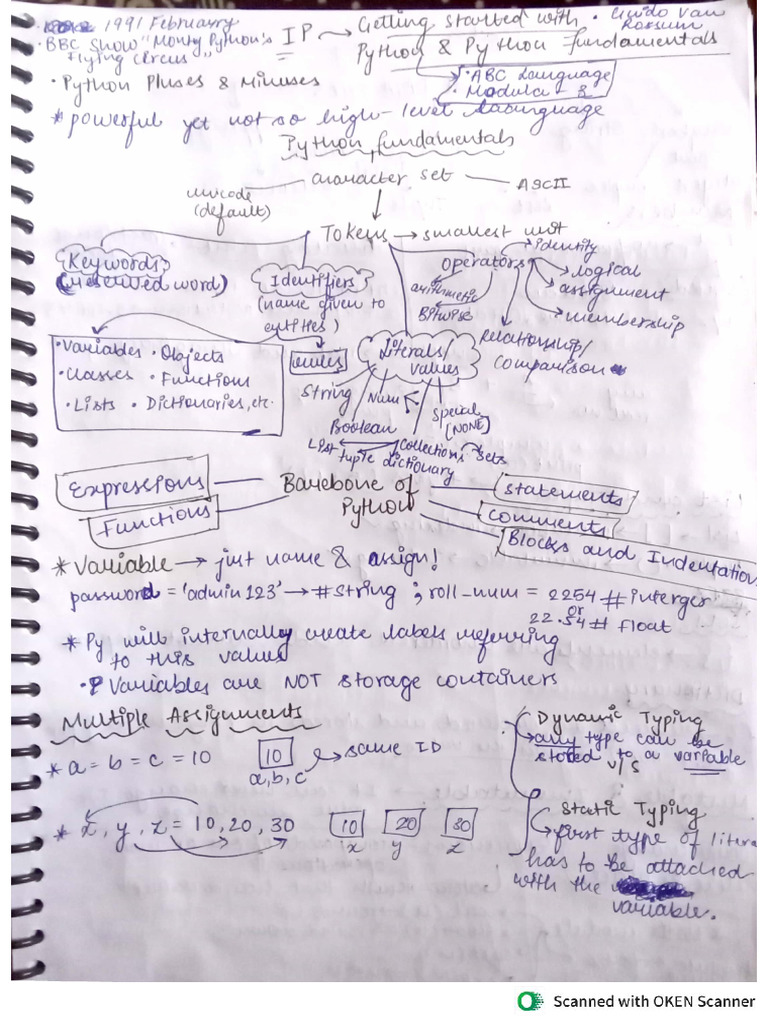 1991 February
• BBC Show "Monty Python's Flying Circus"
IP → Getting started with Python & Python fundamentals
• Guido Van Rossum
• ABC Language
• Modula - 
• Python Pluses & Minuses
* powerful yet not so high-level
Python fundamentals
unicode (default)
character set
ASCII
Tokens → smallest unit
Keywords
(reserved word)
Identifiers
(name given to entities)
rules
operators
identity
logical
assignment
membership
Relationship/
comparison
arithmetic
Bitwise
Literals/
values
String
Num
Boolean
special
[NONE]
collections
List
tuple
dictionary
sets
• Variables • Objects
• Classes • Functions
• Lists • Dictionaries, etc.
Expressions
Functions
Barebone of
Python
statements
comments
Blocks and Indentation
* Variable → just name & assign!
password = 'admin123' → #string ; roll_num = 2254 #interger
or
22.54 # float
* Py will internally create labels referring
to this values
• Variables are NOT storage containers
Multiple Assignments
* a = b = c = 10
10
a, b, c
same ID
* x, y, z = 10, 20, 30
10 20 30
x y z
Dynamic Typing
any type can be
stored to a variable
v/s
Static Typing
first type of litera
has to be attached
with the
variable.
Scanned with OKEN Scanner